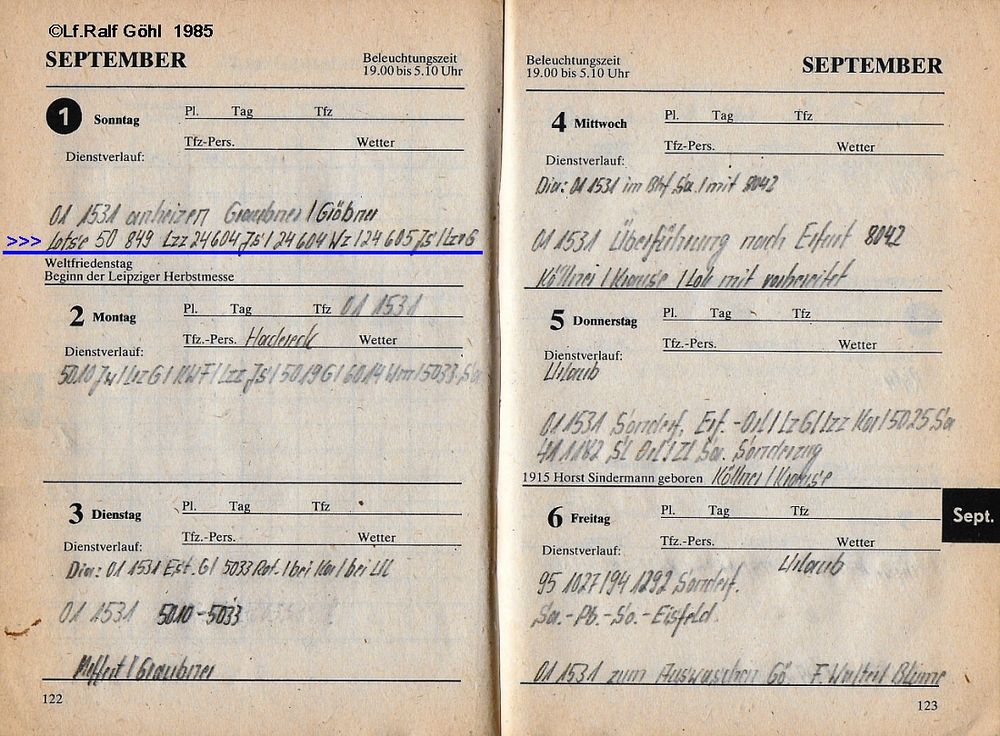 ©Lf.Ralf Göhl 1985
SEPTEMBER
Beleuchtungszeit
19.00 bis 5.10 Uhr
1 Sonntag
Pl. Tag Tfz
Tfz-Pers. Wetter
Dienstverlauf:
01 1531 anheizen Graubner / Gröbner
>>> Lotse 50 849 Lzz 24604 Js / 24604 Wz / 24605 Js / Lzz G
Weltfriedenstag
Beginn der Leipziger Herbstmesse
2 Montag
Pl. Tag Tfz 01 1531
Tfz.-Pers. Wetter
Dienstverlauf:
5010 / Lrz G / KWF / Lzz Js / 5019 G / 6014 / 5033
3 Dienstag
Pl. Tag Tfz
Tfz.-Pers. Wetter
Dienstverlauf:
Dia: 01 1531 Est. G / 5033 Rot. / bei Ka / bei
01 1531 5010-5033
Meffert / Graubner
122
Beleuchtungszeit
19.00 bis 5.10 Uhr
SEPTEMBER
4 Mittwoch
Pl. Tag Tfz
Tfz-Pers. Wetter
Dienstverlauf:
Dia: 01 1531 im Bhf Sa. / mit 8042
01 1531 Überführung nach Erfurt 8042
Köllner / Krause / Lok mit vorbereitet
5 Donnerstag
Pl. Tag Tfz
Tfz.-Pers. Wetter
Dienstverlauf:
Urlaub
01 1531 Sonderf. Erf. - / Lz G / Lzz Ka / 5025 Sa
41 1182 Sa. Sonderzug
1915 Horst Sindermann geboren Köllner / Krause
6 Freitag
Pl. Tag Tfz
Tfz.-Pers. Wetter
Dienstverlauf:
Urlaub
95 1027 / 94 1292 Sonderf.
Sa.-Pb.-So.-Eisfeld.
01 1531 zum Auswaschen Gö F. Walter / Blume
Sept.
123